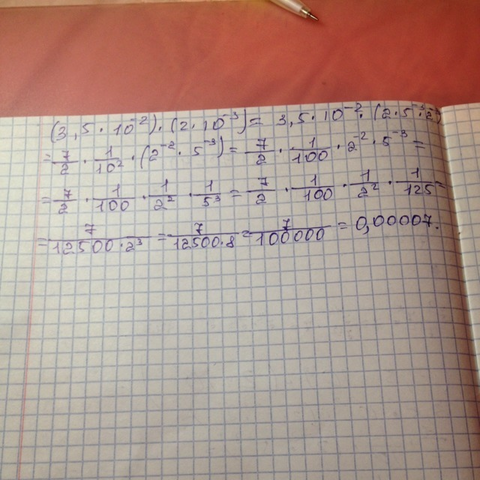 (3,5·10⁻²)·(2·10⁻³) = 3,5·10⁻²·(2·5⁻³·2
= 7/2 · 1/10² · (2⁻²·5⁻³) = 7/2 · 1/100 · 2⁻²·5⁻³ =
= 7/2 · 1/100 · 1/2² · 1/5³ = 7/2 · 1/100 · 1/2² · 1/125 =
= 7/12500·2³ = 7/12500·8 = 7/100000 = 0,00007.